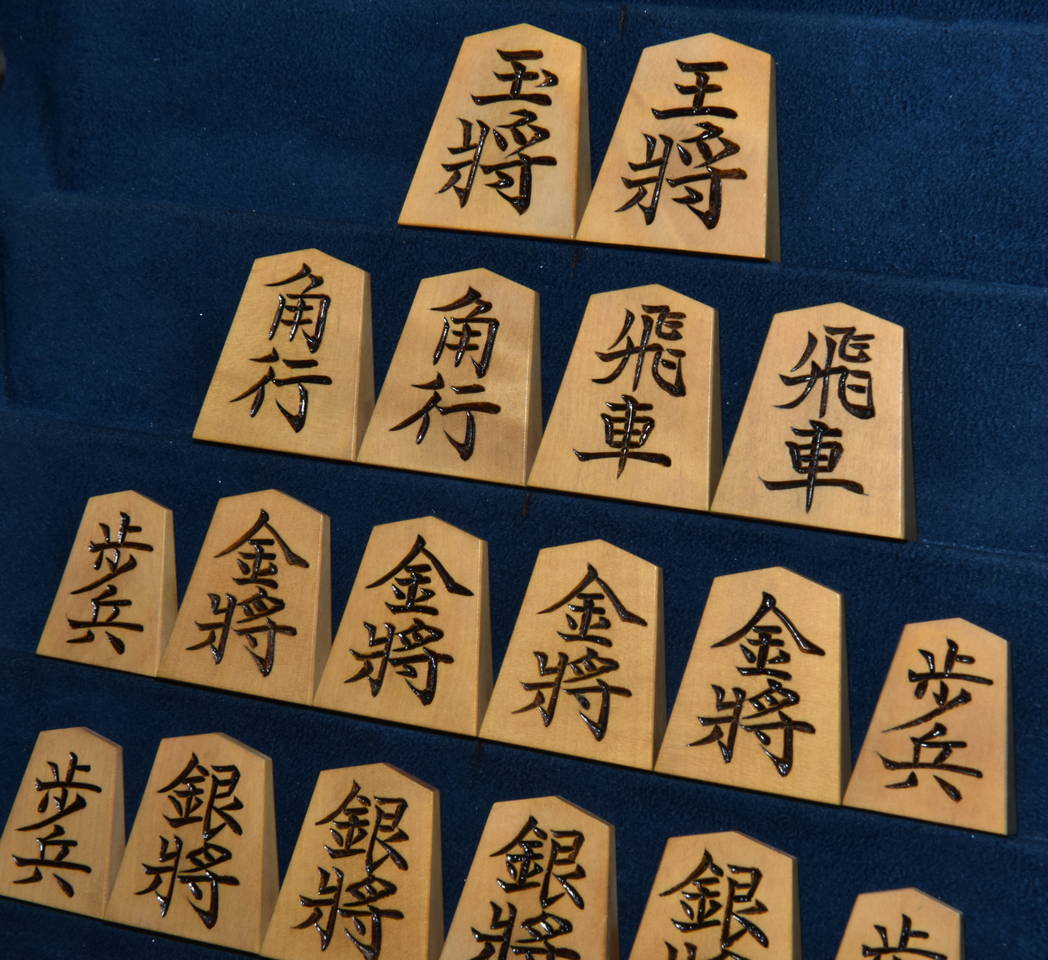 玉將 王將
角行 角行 飛車 飛車
歩兵 金將 金將 金將 金將 歩兵
歩兵 銀將 銀將 銀將 銀 歩